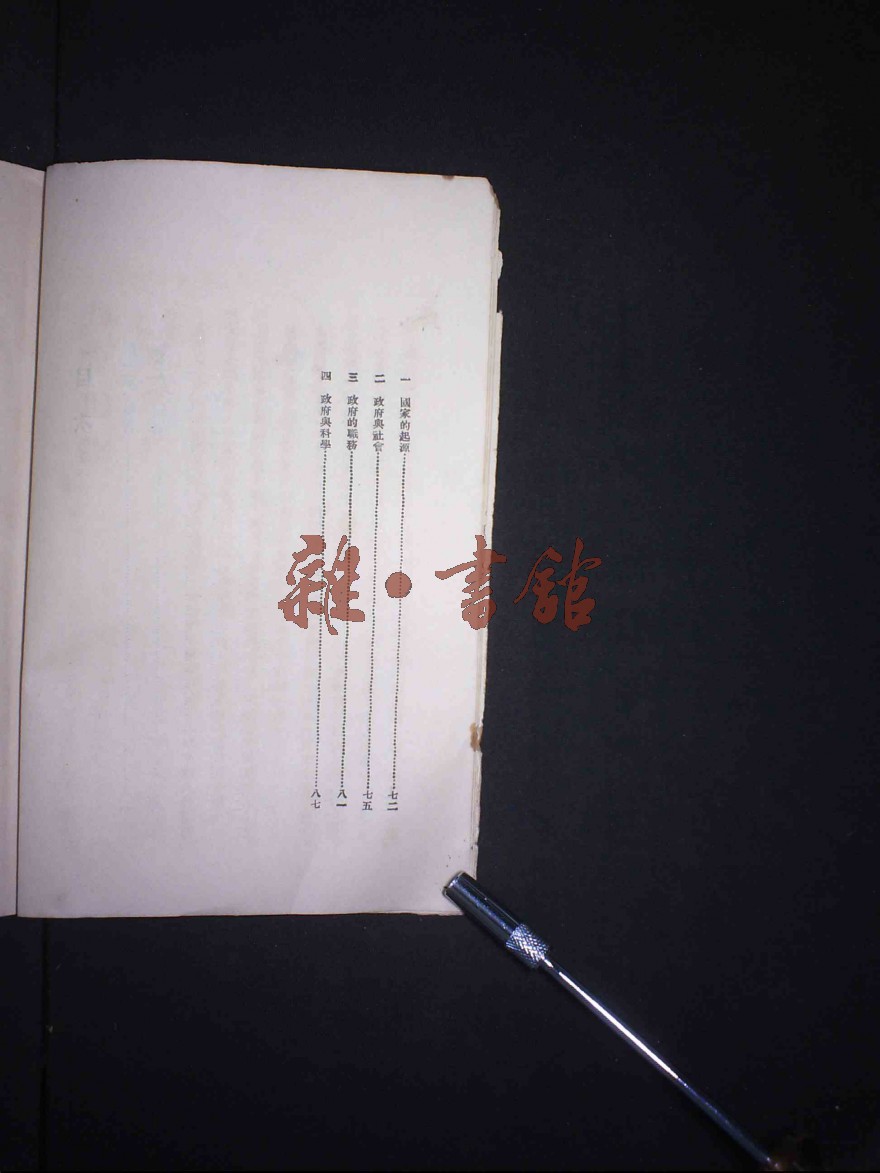 一 國家的起源………七二
二 政府與社會………七五
三 政府的職務………八一
四 政府與科學………八七
雜·書館